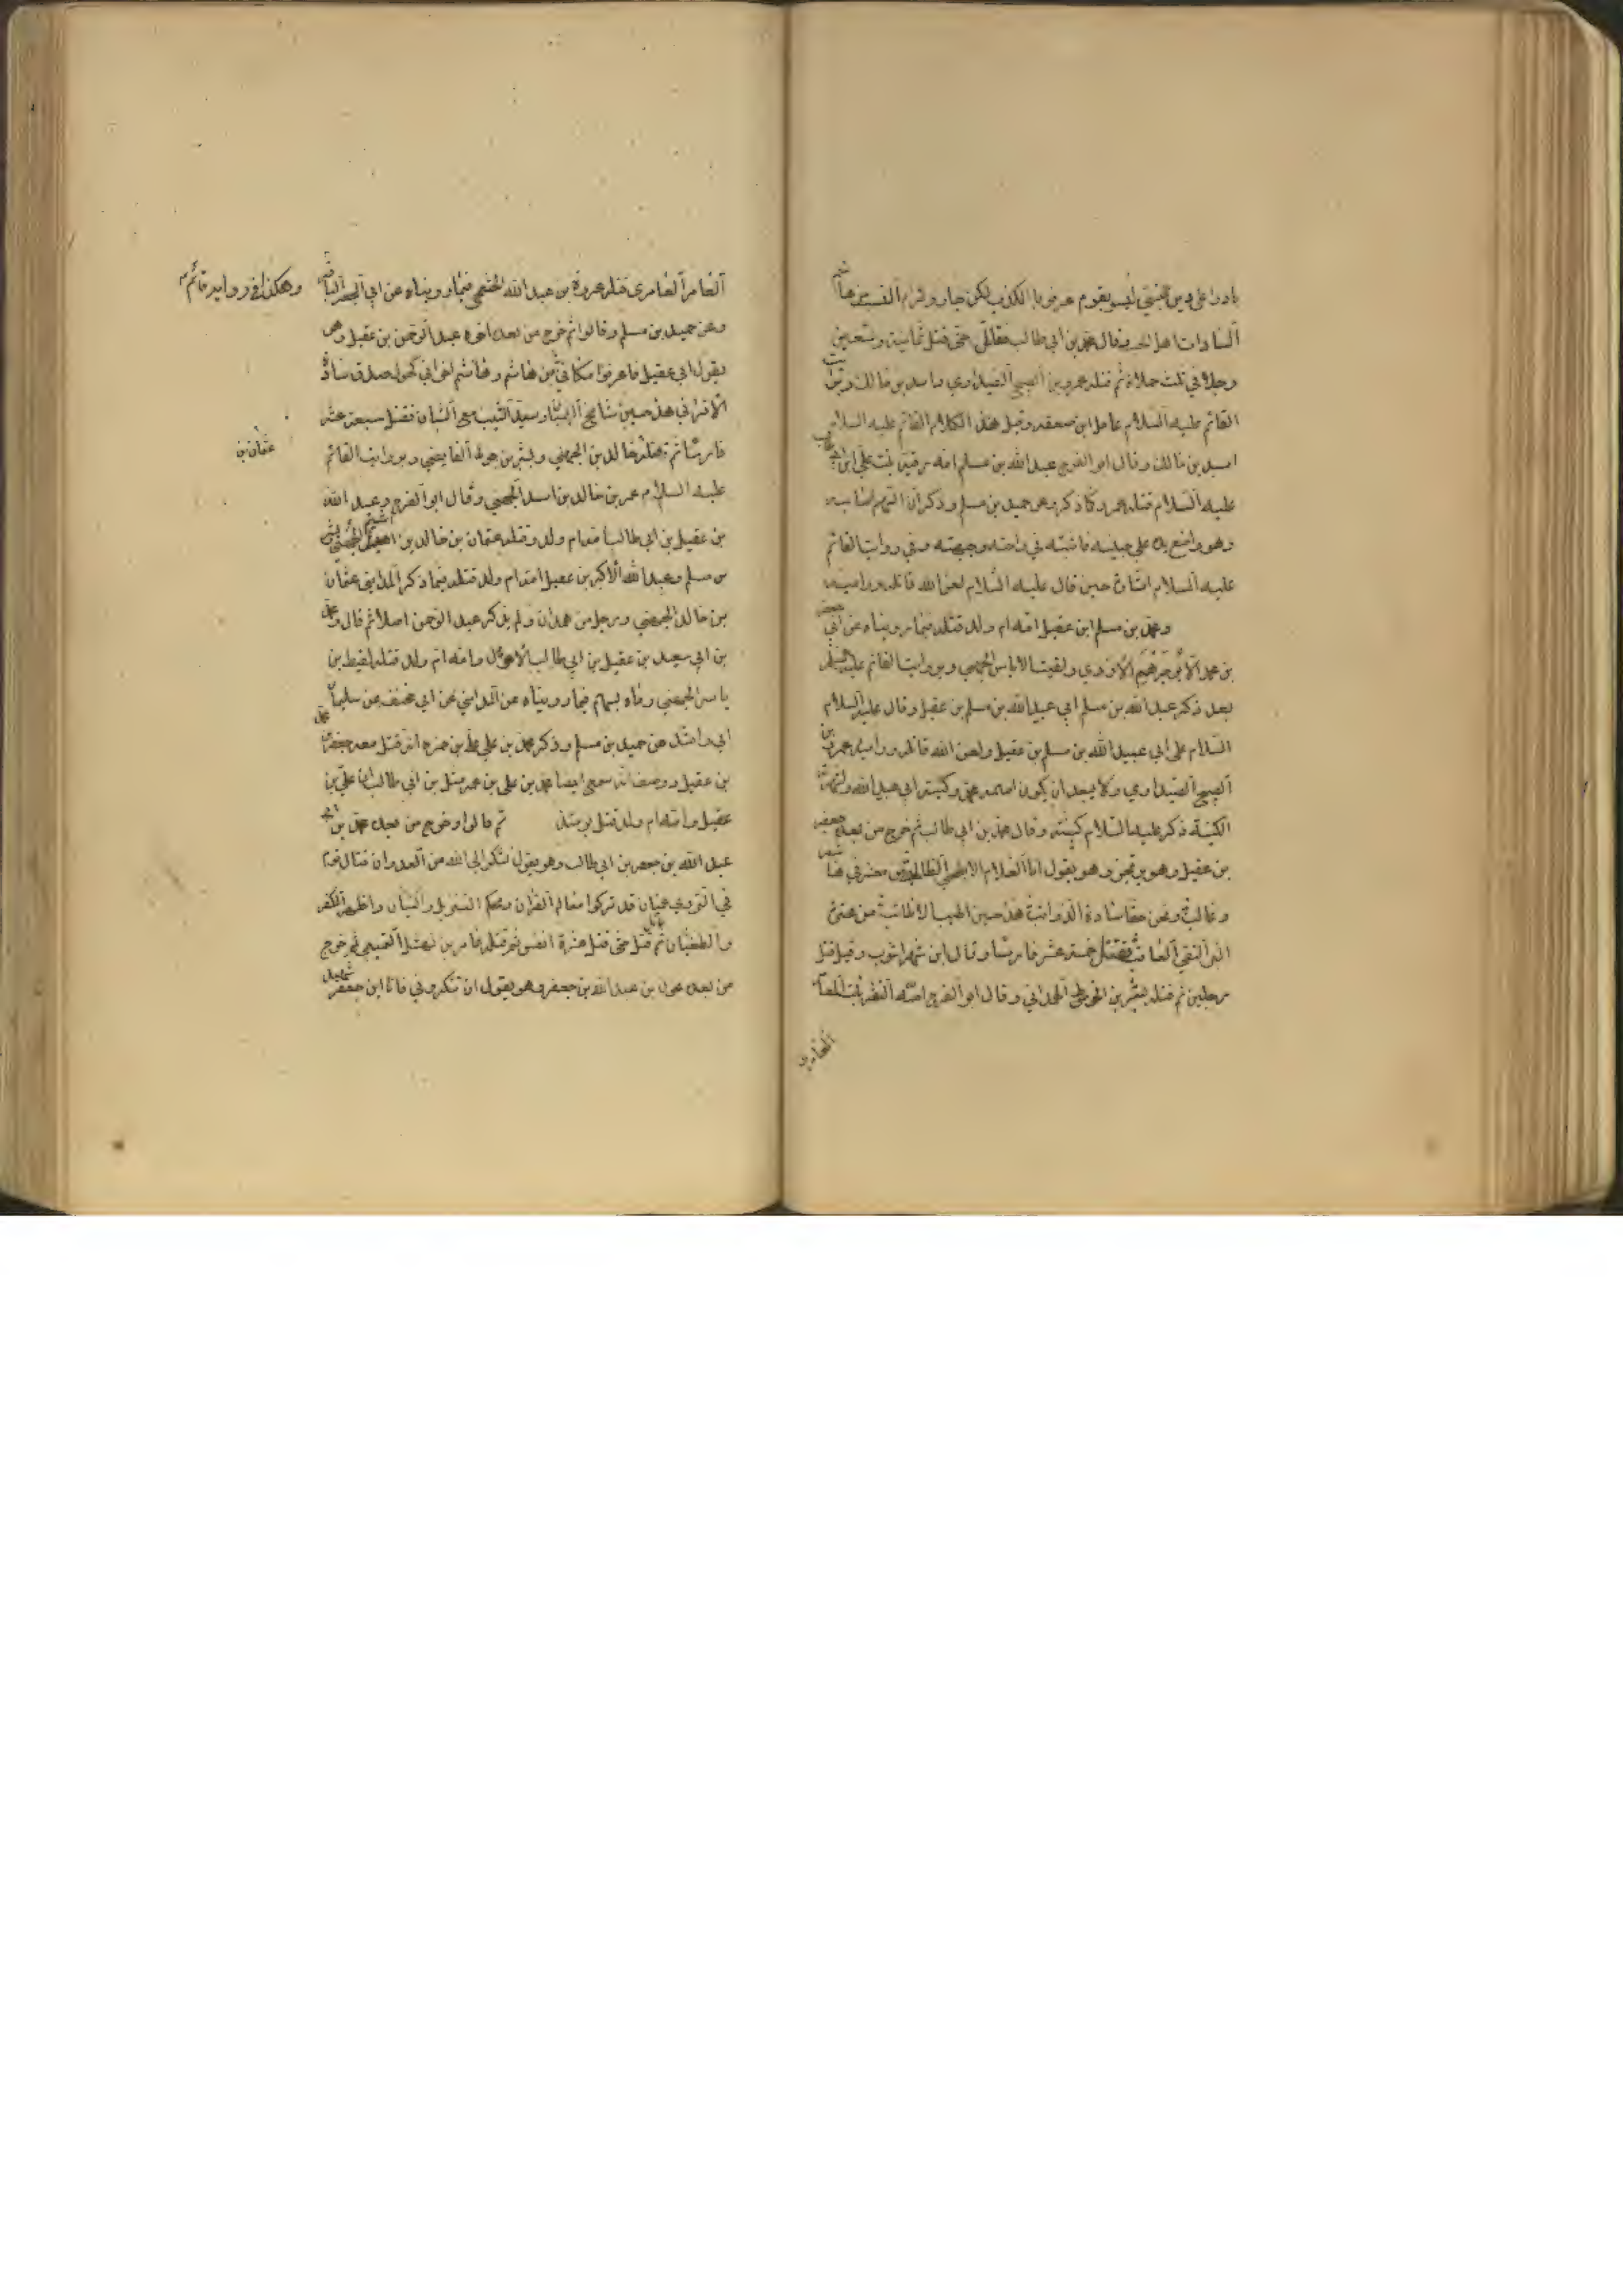 بادوا على دين النبي ليسوا بقوم عرفوا بالكذب لكن خيار وكرام النسب من هاشم
السادات اهل الحسب وقال محمد بن ابي طالب فقاتل حتى قتل ثمانية وتسعين
رجلا في ثلث حملات ثم قتله عمرو بن الصبيح الصيداوي واسد بن مالك وفي زيارت
القائم عليه السلام عامل ابن صعصعه وقيل هذا الكلام القائم عليه السلام
اسد بن مالك وقال ابو الفرج عبد الله بن مسلم امه رقية بنت علي ابن ابي طالب
عليه السلام قتله عمرو كما ذكره عن حميد بن مسلم وذكر ان السهم اصابه
وهو واضع يده على جبينه فاثبته في راحته وجبهته وفي روايت القائم
عليه السلام اشارة حين قال عليه السلام لعن الله قاتله وراميه
ومحمد بن مسلم ابن عقيل امه ام ولد قتله فيما رويناه عن ابي جعفر
بن محمد ابو جرهم الازدي ولقيط الاياس الجهني وبروايت القائم عليه السلام
بعد ذكر عبد الله بن مسلم ابي عبد الله بن مسلم بن عقيل وقال عليه السلام
السلام على ابي عبيد الله بن مسلم بن عقيل ولعن الله قاتله وراميه عمرو بن
الصبيح الصيداوي ولا يبعد ان يكون اسمه محمد وكنيته ابي عبد الله ولشهرة
الكنية ذكر عليه السلام كنيته وقال محمد بن ابي طالب ثم خرج من بعده جعفر
بن عقيل وهو يرتجز وهو يقول انا الغلام الابطحي الطالبي من معشر في هاشم
وغالب ونحن حقا سادة الذوائب هذا حسين اطيب الاطائب من عترة
البر التقي العاقب فقتل خمسة عشر فارسا وقال ابن شهراشوب وقيل قتل
رجلين ثم قتله بشر بن الخوط الهمداني وقال ابو الفرج امه ام الثغر بنت
العامري
العامر العامري قتله عروة بن عبد الله الخثعمي فيما رويناه عن ابي جعفر الباقر
وهكذا في روايه قائم
وعن حميد بن مسلم وقالوا ثم خرج من بعده اخوه عبد الرحمن بن عقيل وهو
يقول ابي عقيل فاعرفوا مكاني من هاشم وهاشم اخواني كهول صدق سادة
الاقران هذا حسين شامخ البنيان وسيد الشيب مع الشبان فقتل سبعة عشر
فارسا ثم قتله خالد بن الجهني وبشر بن حوط القايضي وبروايت القائم
عثمان بن
عليه السلام عمر بن خالد بن اسد الجهني وقال ابو الفرج وعبد الله
بن عقيل بن ابي طالب امه ام ولد وقتله عثمان بن خالد بن اشيم الجهني وبشر
بن مسلم وعبد الله الاكبر بن عقيل امه ام ولد قتله فيما ذكر المدايني عثمان
بن خالد الجهني ورجل من همدان ولم يذكر عبد الرحمن اصلا ثم قال ومحمد
بن ابي سعيد بن عقيل بن ابي طالب الاحول وامه ام ولد قتله لقيط بن
ياسر الجهني رماه بسهم فيما رويناه عن المدايني عن ابي مخنف عن سليمان
ابي راشد عن حميد بن مسلم وذكر محمد بن علي بن حمزه انه قتل معه جعفر بن محمد
بن عقيل ووصف انه سمع ايضا محمد بن علي بن حمزه مثل بن ابي طالب ان علي بن
عقيل وامه ام ولد قتل يومئذ ثم قالوا وخرج من بعده محمد بن
عبد الله بن جعفر بن ابي طالب وهو يقول نشكو الى الله من العدوان قتال قوم
في الردى عميان قد تركوا معالم القران ومحكم التنزيل والتبيان واظهروا الكفر
والطغيان ثم قاتل حتى قتل عشرة انفس ثم قتله عامر بن نهشل التميمي ثم خرج
من بعده عون بن عبد الله بن جعفر وهو يقول ان تنكروني فانا ابن جعفر شهيد